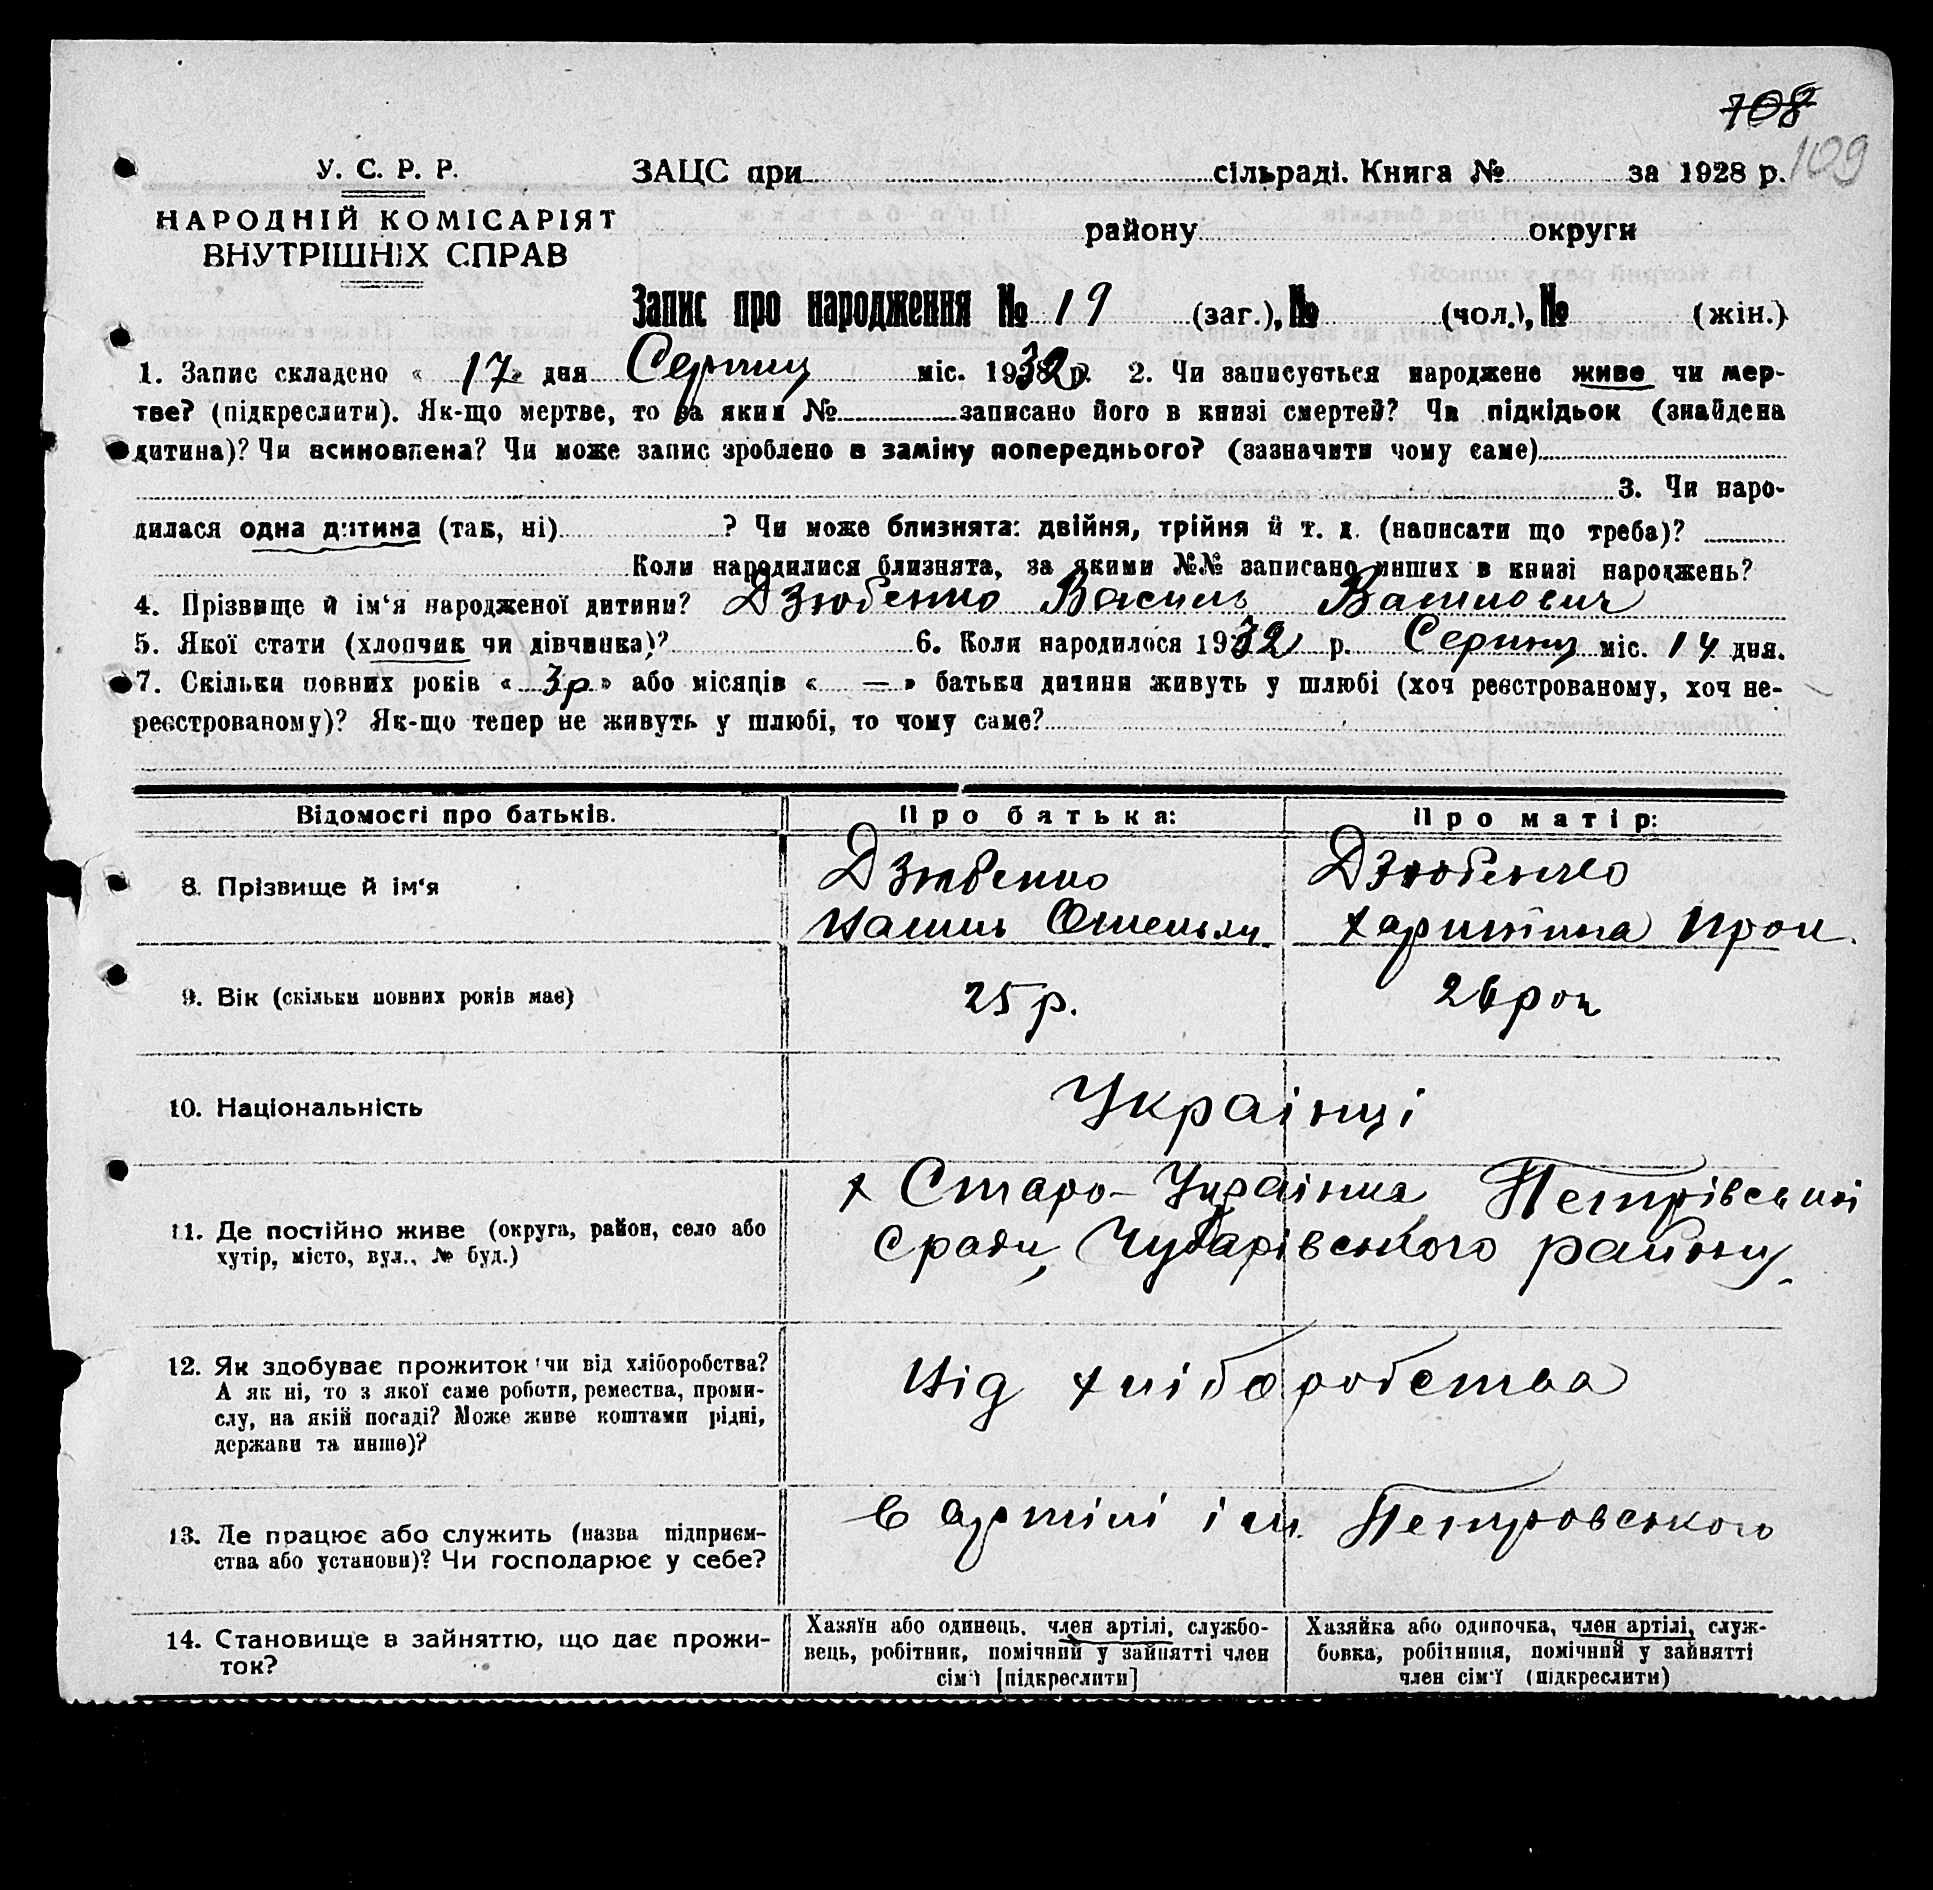 708
109
У. С. Р. Р.
НАРОДНІЙ КОМІСАРІЯТ
ВНУТРІШНІХ СПРАВ
ЗАЦС при сільраді. Книга № за 1928 р.
району округи
Запис про народження № 19 (заг.), № (чол.), № (жін.)
1. Запис складено « 17 » дня Серпня міс. 1932 р. 2. Чи записується народжене живе чи мер-
тве? (підкреслити). Як-що мертве, то за яким № записано його в книзі смертей? Чи підкідьок (знайдена
дитина)? Чи всиновлена? Чи може запис зроблено в заміну попереднього? (зазначити чому саме)
3. Чи наро-
дилася одна дитина (так, ні) ? Чи може близнята: двійня, трійня й т. д. (написати що треба)?
Коли народилися близнята, за якими №№ записано инших в книзі народжень?
4. Прізвище й ім‘я народженої дитини? Дзюбенко Василь Василович
5. Якої стати (хлопчик чи дівчинка)? 6. Коли народилося 1932 р. Серпня міс. 14 дня.
7. Скільки повних років « 3р » або місяців « — » батьки дитини живуть у шлюбі (хоч реєстрованому, хоч не-
реєстрованому)? Як-що тепер не живуть у шлюбі, то чому саме?
Відомості про батьків. Про батька: Про матір:
8. Прізвище й ім‘я
Дзюбенко Дзюбенко
Василь Омельян Харитина Прок.
9. Вік (скільки повних років має) 25 р. 26 рок
10. Національність Українці
х Старо-Українка Петрівської
11. Де постійно живе (округа, район, село або
хутір, місто, вул., № буд.)
Сради, Чубарівського району
12. Як здобуває прожиток чи від хліборобства?
А як ні, то з якої саме роботи, ремества, проми-
слу, на якій посаді? Може живе коштами рідні,
держави та инше)?
Від хліборобства
13. Де працює або служить (назва підприєм-
ства або установи)? Чи господарює у себе?
в артілі ім. Петровського
14. Становище в зайняттю, що дає прожи-
ток?
Хазяїн або одинець, член артілі, службо-
вець, робітник, помічний у зайнятті член
сім‘ї [підкреслити]
Хазяйка або одиночка, член артілі, служ-
бовка, робітниця, помічний у зайнятті
член сім‘ї (підкреслити)